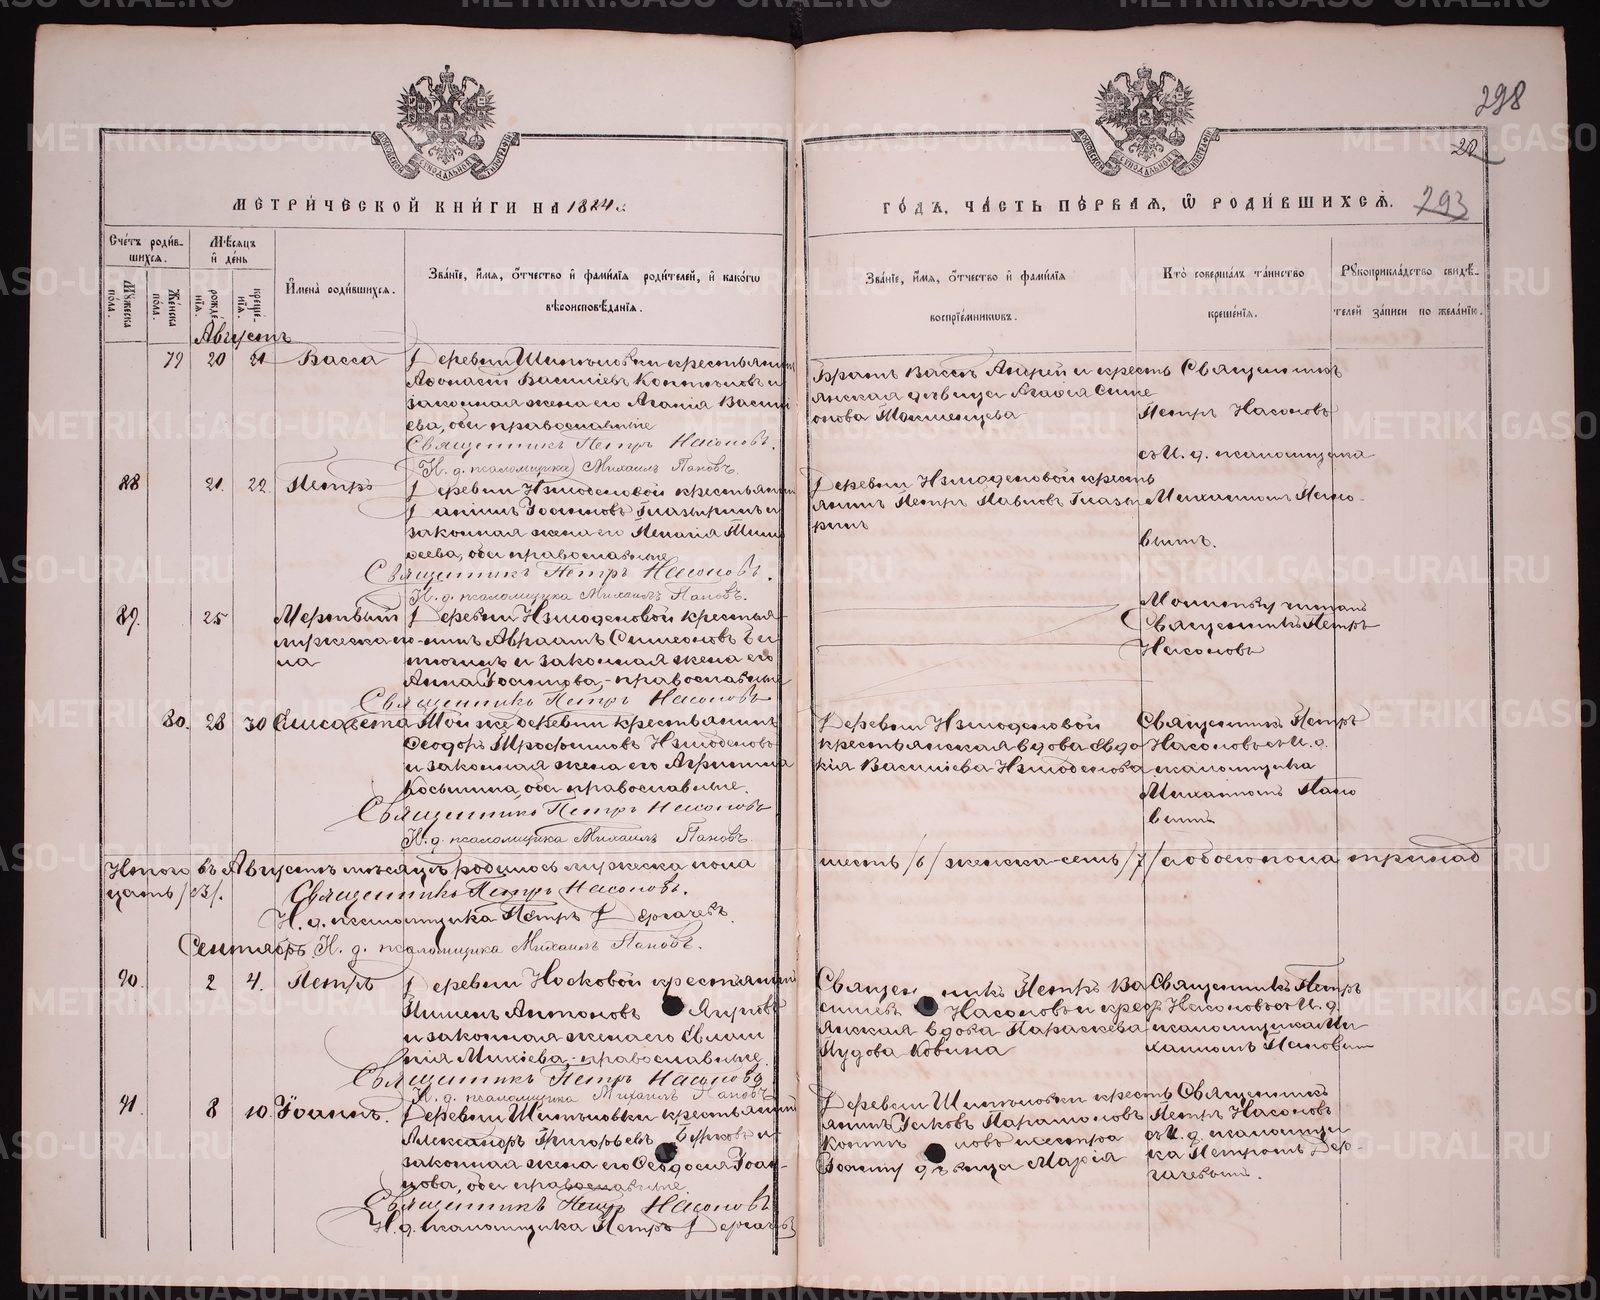 298
20
293
МЕТРИ́ЧЕСКОЙ КНИ́ГИ НА 1884 г.
ГО́ДЪ, ЧА́СТЬ ПЕ́РВАЯ, Ѡ РОДИ́ВШИХСЯ.
Сче́тъ роди́вшихся.
Мѣ́сяцъ и де́нь
Мꙋ́жеска по́ла.
Же́нска по́ла.
рожде́нія.
креще́нія.
И҆мена̀ роди́вшихся.
Зва́ніе, и҆́мя, ѻ҆́тчество и҆ фами́лія роди́телей, и҆ како́гѡ вѣроисповѣ́данія.
Зва́ніе, и҆́мя, ѻ҆́тчество и҆ фами́лія воспріе́мникѡвъ.
Кто̀ соверша́лъ та́инство креще́нія.
Рꙋкоприкла́дство свидѣ́телей за́писи по жела́нію.
Августъ
79 20 21 Васса
Деревни крестьянинъ
Аѳонасій Васильевъ и
законная жена его Агапія Васильева, оба православные
Священникъ Петръ Насоновъ.
И. д. псаломщика Михаилъ Пановъ.
Братъ Вассы Андрей и крестьянская дѣвица
Священникъ
Петръ Насоновъ
съ И. д. псаломщика
Михаиломъ Пановымъ.
88 21 22 Петръ
Деревни Измоденовой крестьянинъ
Даніилъ Іоанновъ Глазыринъ и
законная жена его Пелагія
оба православные
Священникъ Петръ Насоновъ.
И. д. псаломщика Михаилъ Пановъ.
Деревни Измоденовой крестьянинъ Петръ Павловъ Глазыринъ
89. 25 Мертвый
мужеска пола
Деревни Измоденовой крестьянинъ Авраамъ Симеоновъ
и законная жена его
Анна Іоаннова, православные
Священникъ Петръ Насоновъ
Молитву читалъ
Священникъ Петръ
Насоновъ
80. 28 30 Елисавета
Той же деревни крестьянинъ
Ѳеодоръ Трофимовъ Измоденовъ
и законная жена его Агрипина
Косьмина, оба православные.
Священникъ Петръ Насоновъ
И. д. псаломщика Михаилъ Пановъ.
Деревни Измоденовой
крестьянская вдова Евдокія Васильева Измоденова
Священникъ Петръ
Насоновъ съ И. д.
псаломщика
Михаиломъ Пановымъ
Итого въ Августѣ мѣсяцѣ родилось мужеска пола шесть /6/ женска семь /7/ а обоего пола тринадцать /13/.
Священникъ Петръ Насоновъ.
И. д. псаломщика Петръ Дергачевъ.
Сентябрь И. д. псаломщика Михаилъ Пановъ.
90. 2 4. Петръ
Деревни Носковой крестьянинъ
Пименъ Антоновъ
и законная жена его
православные
Священникъ Петръ Насоновъ
И. д. псаломщика Михаилъ Пановъ
Священникъ Петръ Васильевъ Насоновъ и крестьянская вдова Параскева
Священникъ Петръ
Насоновъ съ И. д.
псаломщика Михаиломъ Пановымъ
91. 8 10. Іоаннъ.
Деревни крестьянинъ
Александръ Григорьевъ и
законная жена его Ѳеодосія Іоаннова, оба православные
Священникъ Петръ Насоновъ
И. д. псаломщика Петръ Дергачевъ
Деревни крестьянинъ Іаковъ и сестра
Іоанну дѣвица Марія
Священникъ
Петръ Насоновъ
съ И. д. псаломщика Петромъ Дергачевымъ.
METRIKI.GASO-URAL.RU